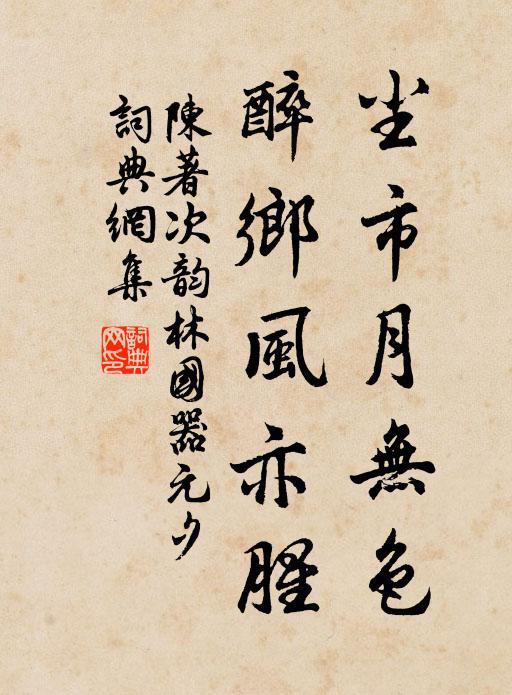 尘市月無色
醉鄉風亦腥
陳著次韵林國器元夕
詞典網集
詞典網印